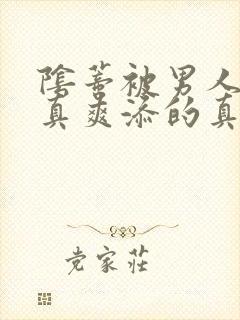 陰蒂被男人
真爽添的真
党家莊